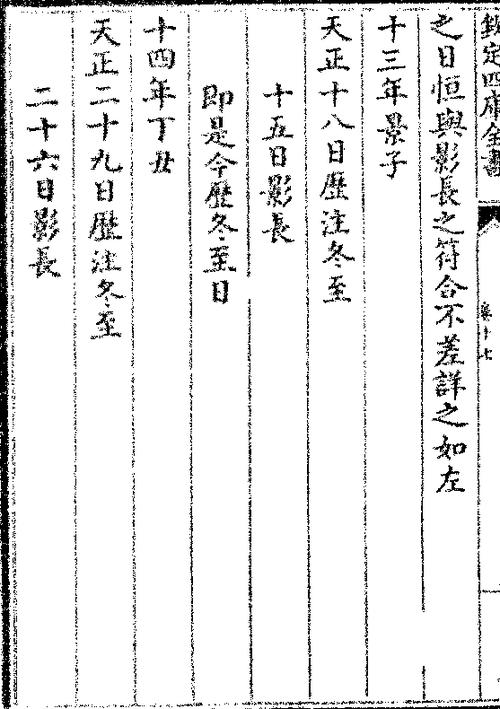 欽定四庫全書
卷十七
之日恒與影長之符合不差詳之如左
十三年景子
天正十八日歷注冬至
十五日影長
即是今歷冬至日
十四年丁丑
天正二十九日歷注冬至
二十六日影長